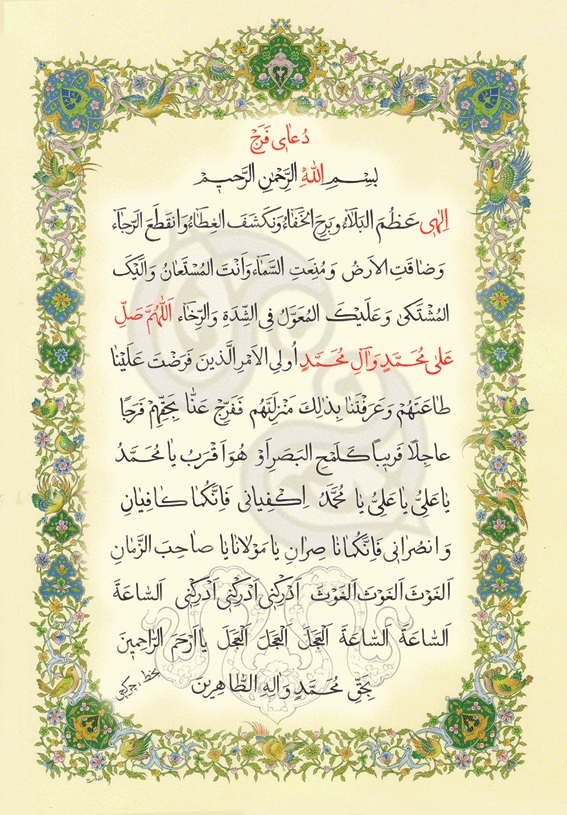 دُعای فَرَج
بِسْمِ اللهِ الرَّحْمٰنِ الرَّحیمِ
اِلٰهی عَظُمَ البَلاٰءُ وَبَرِحَ الخَفٰاءُ وَنکَشَفَ الغِطٰاءُ وَانْقَطَعَ الرَّجٰاء
وَضٰاقَتِ الاَرضُ وَمُنِعَتِ السَّمٰاءُ وَاَنْتَ المُسْتَعٰانُ وَاِلَیْکَ
المُشْتَکیٰ وَعَلَیْکَ المُعَوَّلُ فِی الشِّدَةِ وَالرَّخٰاء اَللّٰهُمَّ صَلِّ
عَلیٰ مُحَمَّدٍ وَآلِ مُحَمَّدٍ اُولِی الاَمْرِ الَّذینَ فَرَضْتَ عَلَیْنٰا
طٰاعَتَهُمْ وَعَرَفْتَنٰا بِذٰلِکَ مَنْزِلَتَهُم فَفَرِّجْ عَنّٰا بِحَقِّهِمْ فَرَجًا
عٰاجِلًا قَریبًا کَلَمْحِ البَصَرِ اَوْ هُوَ اَقْرَبُ یٰا مُحَمَّدُ
یٰا عَلِیُّ یٰا عَلِیُّ یٰا مُحَمَّدُ اِکْفِیٰانی فَاِنَّکُمٰا کٰافِیٰانِ
وَانْصُرٰانی فَاِنَّکُمٰا نٰاصِرٰانِ یٰا مَوْلٰانٰا یٰا صٰاحِبَ الزَّمٰانِ
اَلغَوْثَ اَلغَوْثَ اَلغَوْثَ اَدْرِکْنی اَدْرِکْنی اَدْرِکْنی اَلسّٰاعَةَ
اَلسّٰاعَةَ اَلسّٰاعَةَ اَلْعَجَلَ اَلْعَجَلَ اَلْعَجَلَ یٰا اَرْحَمَ الرّٰاحِمینَ
بِحَقِّ مُحَمَّدٍ وَآلِهِ الطّٰاهِرینَ